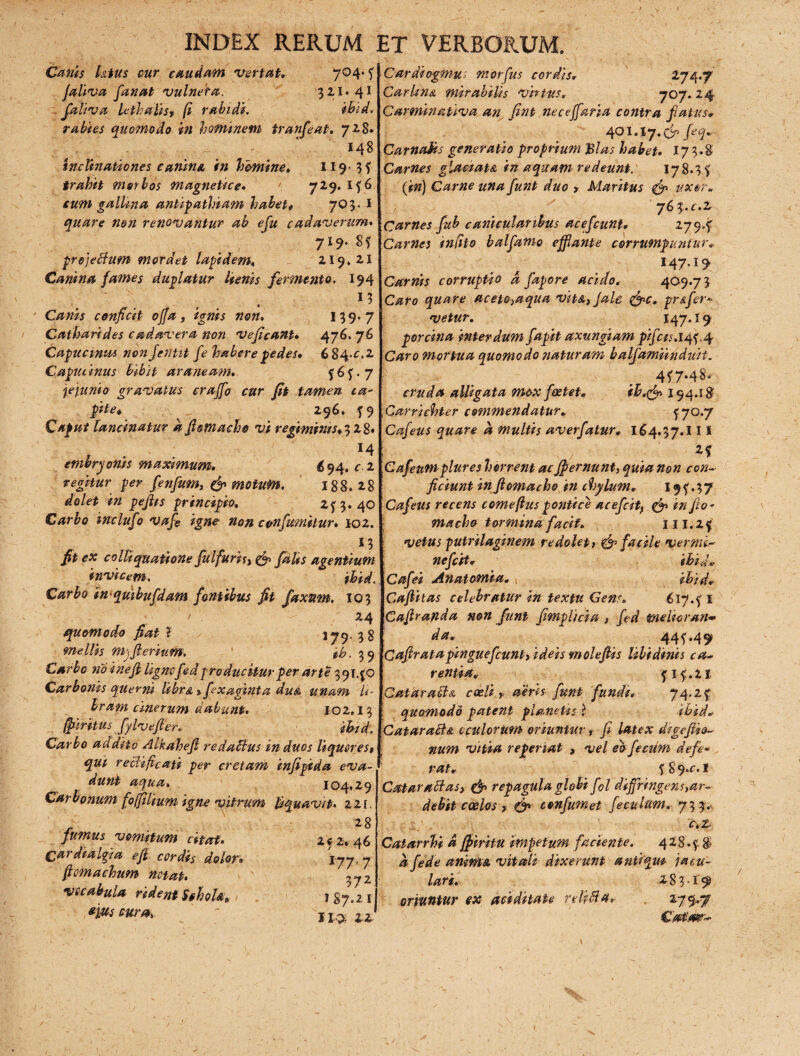 INDEX RERUM ET VERBORUM.
Canis lætus cur caudam vertat. 704. 5
saliva sanat vulnera. 321. 41
saliva lethalis, si rabidi. ibid.
rabies quomodo in hominem transeat. 728.
148
inclinationes caninæ in homine. 119. 35
trahit morbos magnetice. 729. 156
cum gallina antipathiam habet. 703. 1
quare non renovantur ab esu cadaverum.
719. 85
projectum mordet lapidem. 219. 21
Canina fames duplatur lienis fermento. 194
13
Canis conficit ossa, ignis non. 139. 7
Catharides cadavera non vesicant. 476. 76
Capucinus non sentit se habere pedes. 684.c.2
Capucinus bibit araneam. 565. 7
jejunio gravatus crasso cur sit tamen ca-
pite. 296. 59
Caput lancinatur à stomacho vi regiminis. 328.
14
embryonis maximum. 694. c 2
regitur per sensum, & motum. 188. 28
dolet in pestis principio. 253. 40
Carbo incluso vase igne non consumitur. 102.
13
fit ex colliquatione sulfuris, & salis agentium
invicem. ibid.
Carbo in quibusdam fontibus fit saxum. 103
24
quomodo fiat ? 179. 38
mellis mysterium. ib. 39
Carbo nõ inest ligno sed producitur per artē 391.50
Carbonis querni libræ, sexaginta duæ unam li-
bram cinerum dabunt. 102.13
spiritus sylvester. ibid.
Carbo addito Alkahest redactus in duos liquores,
qui rectificati per cretam insipida eva-
dunt aqua. 104.29
Carbonum fossilium igne vitrum liquavit. 221.
28
fumus vomitum citat. 252. 46
Cardialgia est cordis dolor. 177. 7
stomachum notat. 372
vocabula rident Schola. 187.21
ejus cura. 110. 22
Cardiogmus morsus cordis. 274.7
Carlina mirabilis virtus. 707. 24
Carminativa an sint necessaria contra flatus.
401.17. & seq.
Carnalis generatio proprium Blas habet. 173.8
Carnes glaciata in aquam redeunt. 178.35
(in) Carne una sunt duo, Maritus & uxor.
763.c.2
Carnes sub canicularibus acescunt. 279.5
Carnes insito balsamo efflante corrumpuntur.
147.19
Carnis corruptio à sapore acido. 409.73
Caro quare aceto, aqua vitæ, sale &c. præser-
vetur. 147.19
porcina interdum sapit axungiam piscis. 145.4
Caro mortua quomodo naturam balsami induit.
457.48.
cruda alligata mox fœtet. ib. & 194.18
Carrichter commendatur. 570.7
Caseus quare à multis aversatur. 164.37.111
25
Caseum plures horrent ac spernunt, quia non con-
ficiunt in stomacho in chylum. 195.37
Caseus recens comestus ponticè acescit, & in sto-
macho tormina facit. 111.25
vetus putrilaginem redolet, & facile vermi-
nescit. ibid.
Casei Anatomia. ibid.
Castitas celebratur in textu Gens. 617.51
Castranda non sunt simplicia, sed melioran-
da. 445.49
Castrata pinguescunt, ideis molestis libidinis ca-
rentia. 515.21
Cataractæ cœli, aëris sunt fundi. 74.25
quomodò patent planetis ? ibid.
Cataractæ oculorum oriuntur, si latex digestio-
num vitia reperiat, vel eò secum defe-
rat. 589.c.1
Cataractas, & repagula globi sol diffringens, ar-
debit cœlos, & consumet seculum. 733.
c.2
Catarrhi à spiritu impetum faciente. 428.58
à sede animæ vitali dixerunt antiqui jacu-
lari. 283.19
oriuntur ex aciditate relicta. 279.7
Catar-